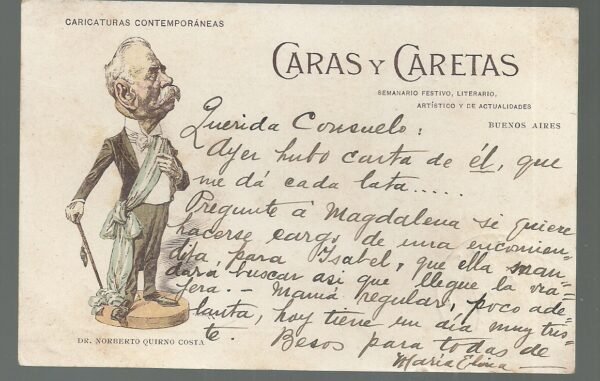 CARICATURAS CONTEMPORÁNEAS
CARAS Y CARETAS
SEMANARIO FESTIVO, LITERARIO,
ARTÍSTICO Y DE ACTUALIDADES
BUENOS AIRES
Querida Consuelo:
Ayer hubo carta de él, que
me dá cada lata.....
Pregunte á Magdalena si quiere
hacerse cargo de una encomien=
dita, para Isabel, que ella man=
dará buscar asi que llegue la via=
jera. - Mamá regular, poco ade=
lanta, hoy tiene un día muy tris=
te. Besos para todas de
María Elvira
DR. NORBERTO QUIRNO COSTA